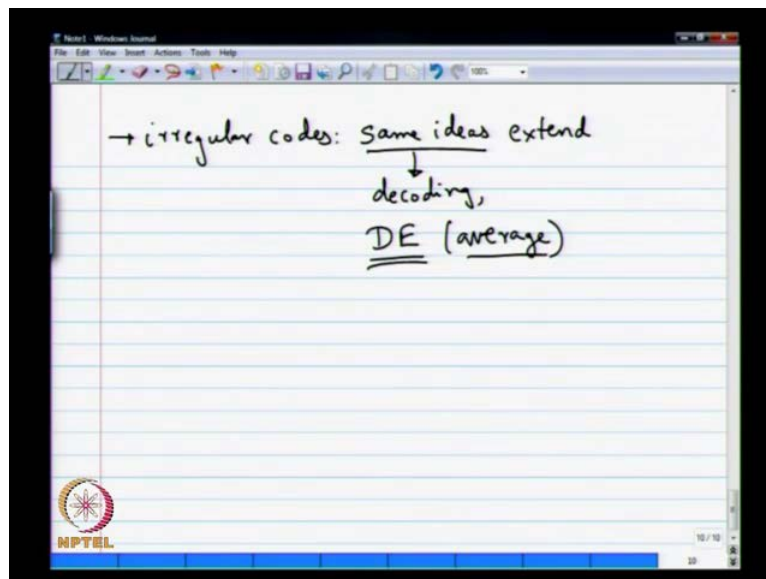 Note1 - Windows Journal
File Edit View Insert Actions Tools Help
100%
→ irregular codes: same ideas extend
↓
decoding,
DE (average)
NPTEL
10 / 10
10